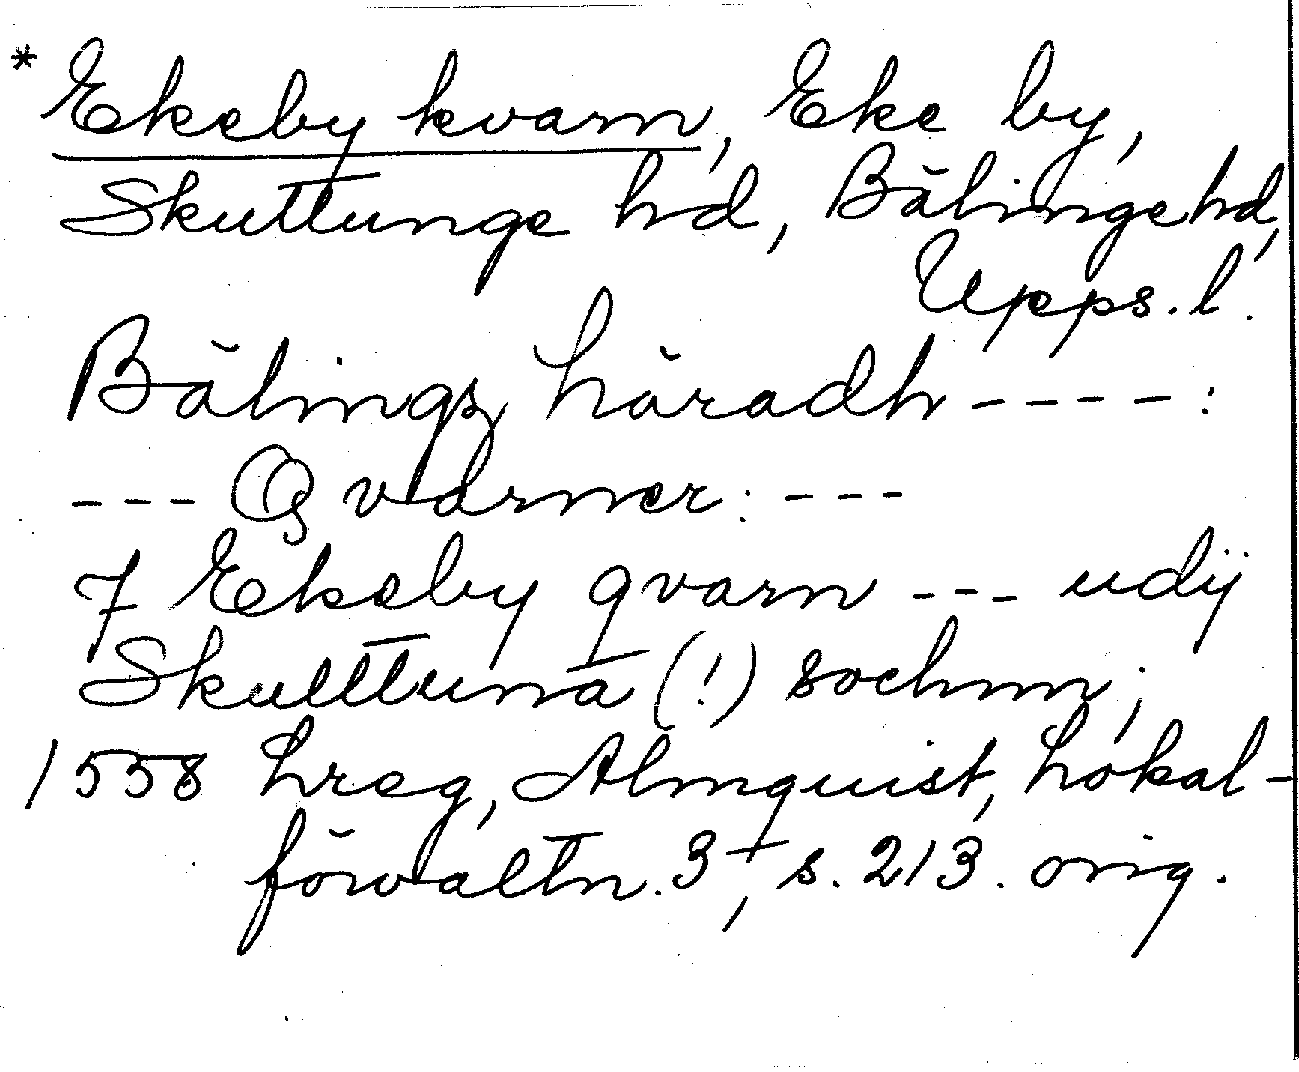 * Ekeby kvarn, Eke by,
Skuttunge hd, Bälinge hd,
Upps. l.
Bälings häradh - - - - :
- - - Qvarner: - - -
7 Ekeby qvarn - - - udij
Skulttuna (!) sochnn;
1558 hreg, Almquist, Lokal-
förvaltn. 3, s. 213. orig.